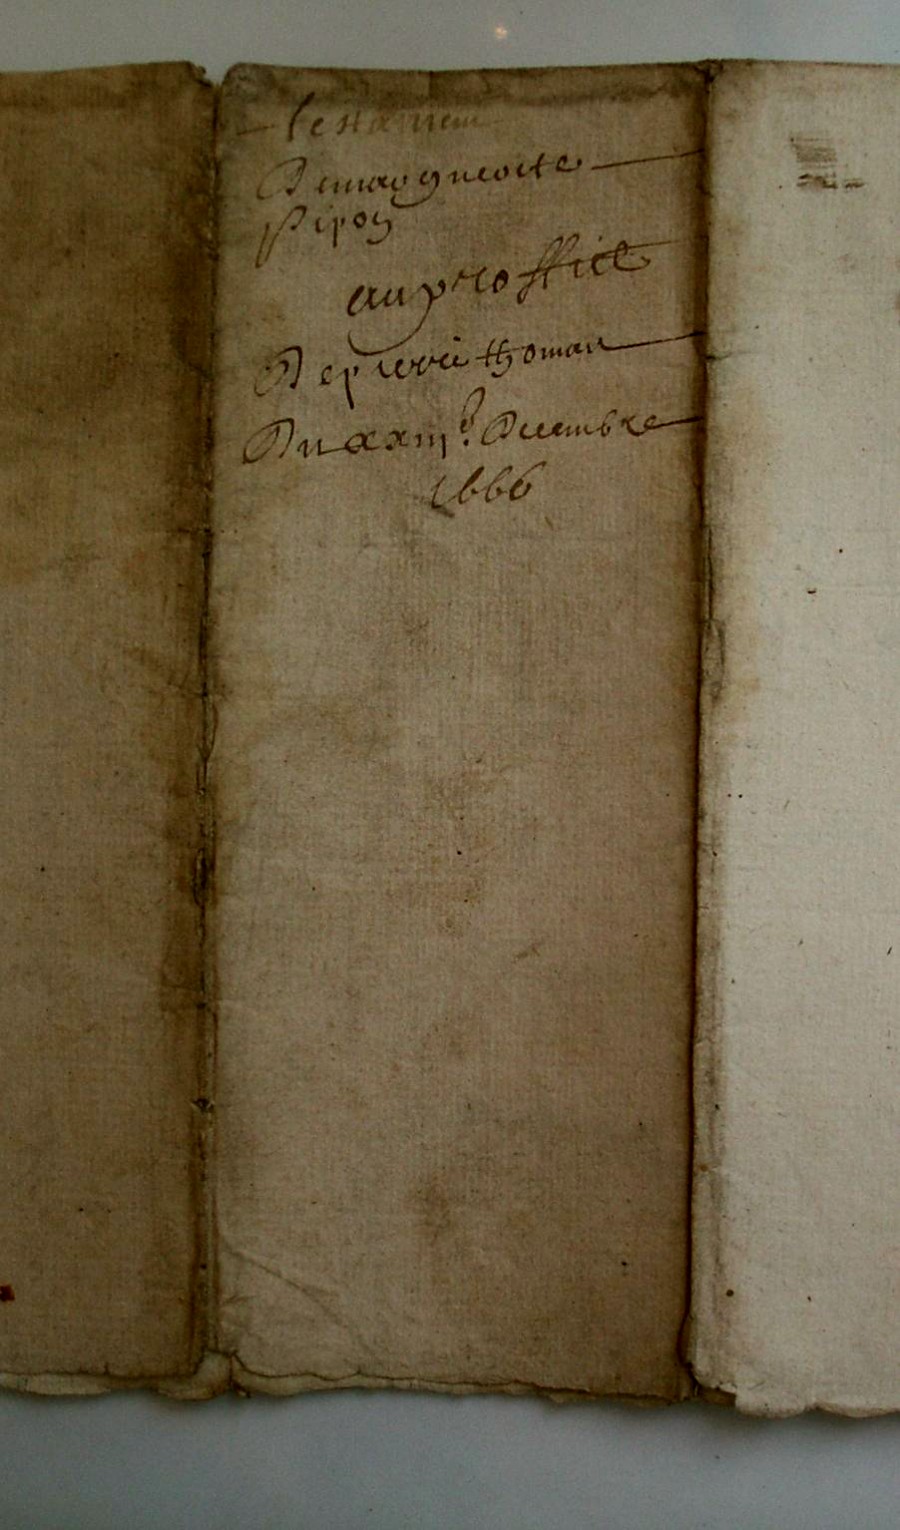 testament
De margueritte
Pipon
au proffict
De pierre thomas
Du xxiij.e Decembre
1666